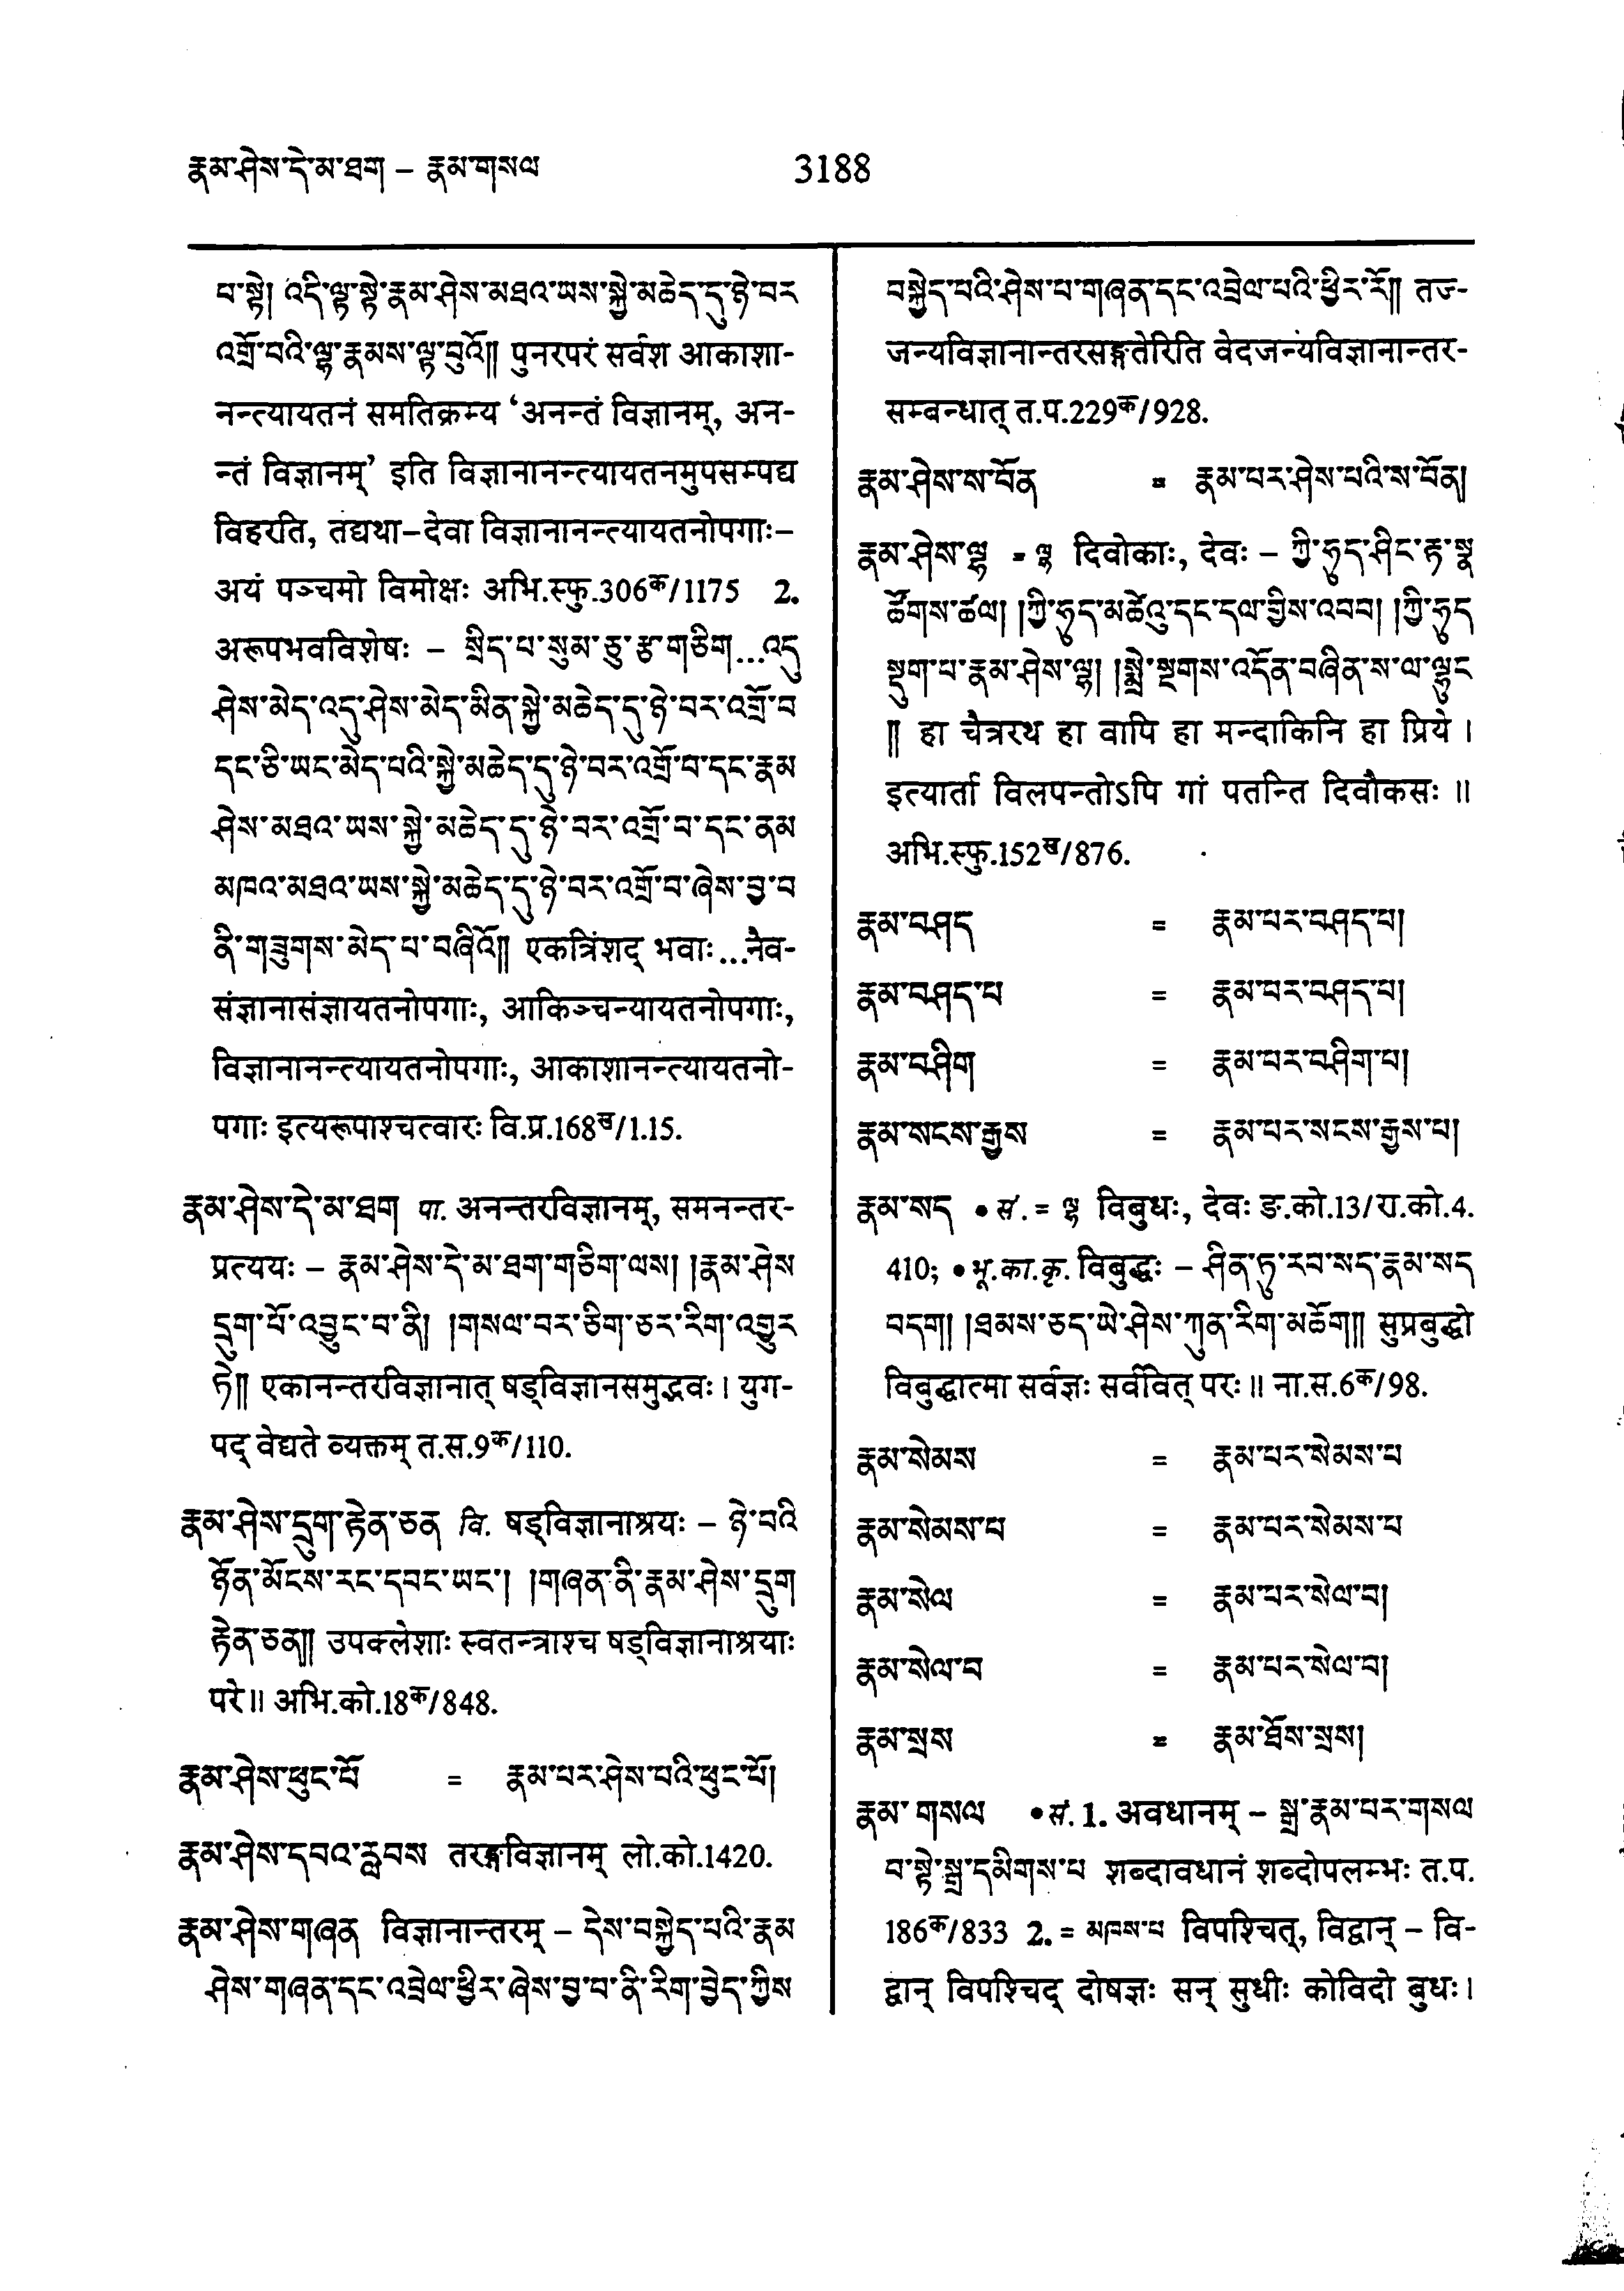 རྣམ་ཤེས་དེ་མ་ཐག – རྣམ་གསལ
3188
པ་སྟེ། འདི་ལྟ་སྟེ་རྣམ་ཤེས་མཐའ་ཡས་སྐྱེ་མཆེད་དུ་ཉེ་བར
འགྲོ་བའི་ལྷ་རྣམས་ལྟ་བུའོ།། पुनरपरं सर्वश आकाशा-
नन्त्यायतनं समतिक्रम्य ‘अनन्तं विज्ञानम्, अन-
न्तं विज्ञानम्’ इति विज्ञानानन्त्यायतनमुपसम्पद्य
विहरति, तद्यथा–देवा विज्ञानानन्त्यायतनोपगाः–
अयं पञ्चमो विमोक्षः अभि.स्फु.306क/1175 2.
अरूपभवविशेषः – སྲིད་པ་སུམ་ཅུ་རྩ་གཅིག...འདུ
ཤེས་མེད་འདུ་ཤེས་མེད་མིན་སྐྱེ་མཆེད་དུ་ཉེ་བར་འགྲོ་བ
དང་ཅི་ཡང་མེད་པའི་སྐྱེ་མཆེད་དུ་ཉེ་བར་འགྲོ་བ་དང་རྣམ
ཤེས་མཐའ་ཡས་སྐྱེ་མཆེད་དུ་ཉེ་བར་འགྲོ་བ་དང་ནམ
མཁའ་མཐའ་ཡས་སྐྱེ་མཆེད་དུ་ཉེ་བར་འགྲོ་བ་ཞེས་བྱ་བ
ནི་གཟུགས་མེད་པ་བཞིའོ།། एकत्रिंशद् भवाः...नैव-
संज्ञानासंज्ञायतनोपगाः, आकिञ्चन्यायतनोपगाः,
विज्ञानानन्त्यायतनोपगाः, आकाशानन्त्यायतनो-
पगाः इत्यरूपाश्चत्वारः वि.प्र.168ख/1.15.
རྣམ་ཤེས་དེ་མ་ཐག पा. अनन्तरविज्ञानम्, समनन्तर-
प्रत्ययः – རྣམ་ཤེས་དེ་མ་ཐག་གཅིག་ལས། །རྣམ་ཤེས
དྲུག་པོ་འབྱུང་བ་ནི། །གསལ་བར་ཅིག་ཅར་རིག་འགྱུར
ཏེ།། एकानन्तरविज्ञानात् षड्विज्ञानसमुद्भवः। युग-
पद् वेद्यते व्यक्तम् त.स.9क/110.
རྣམ་ཤེས་དྲུག་རྟེན་ཅན वि. षड्विज्ञानाश्रयः – ཉེ་བའི
ཉོན་མོངས་རང་དབང་ཡང་། །གཞན་ནི་རྣམ་ཤེས་དྲུག
རྟེན་ཅན།། उपक्लेशाः स्वतन्त्राश्च षड्विज्ञानाश्रयाः
परे॥ अभि.को.18क/848.
རྣམ་ཤེས་ཕུང་པོ = རྣམ་པར་ཤེས་པའི་ཕུང་པོ།
རྣམ་ཤེས་དབའ་རླབས तरङ्गविज्ञानम् लो.को.1420.
རྣམ་ཤེས་གཞན विज्ञानान्तरम् – དེས་བསྐྱེད་པའི་རྣམ
ཤེས་གཞན་དང་འབྲེལ་ཕྱིར་ཞེས་བྱ་བ་ནི་རིག་བྱེད་ཀྱིས
བསྐྱེད་པའི་ཤེས་པ་གཞན་དང་འབྲེལ་པའི་ཕྱིར་རོ།། तज्-
जन्यविज्ञानान्तरसङ्गतेरिति वेदजन्यविज्ञानान्तर-
सम्बन्धात् त.प.229क/928.
རྣམ་ཤེས་ས་བོན = རྣམ་པར་ཤེས་པའི་ས་བོན།
རྣམ་ཤེས་ལྷ = ལྷ दिवोकाः, देवः – ཀྱི་ཧུད་ཤིང་རྟ་སྣ
ཚོགས་ཚལ། །ཀྱི་ཧུད་མཚེའུ་དང་དལ་གྱིས་འབབ། །ཀྱི་ཧུད
སྡུག་པ་རྣམ་ཤེས་ལྷ། །སྨྲེ་སྔགས་འདོན་བཞིན་ས་ལ་ལྷུང
།། हा चैत्ररथ हा वापि हा मन्दाकिनि हा प्रिये।
इत्यार्ता विलपन्तोऽपि गां पतन्ति दिवौकसः॥
अभि.स्फु.152ख/876.
རྣམ་བཤད = རྣམ་པར་བཤད་པ།
རྣམ་བཤད་པ = རྣམ་པར་བཤད་པ།
རྣམ་བཤིག = རྣམ་པར་བཤིག་པ།
རྣམ་སངས་རྒྱས = རྣམ་པར་སངས་རྒྱས་པ།
རྣམ་སད • सं. = ལྷ विबुधः, देवः ङ.को.13/रा.को.4.
410; • भू.का.कृ. विबुद्धः – ཤིན་ཏུ་རབ་སད་རྣམ་སད
བདག། །ཐམས་ཅད་ཡེ་ཤེས་ཀུན་རིག་མཆོག།། सुप्रबुद्धो
विबुद्धात्मा सर्वज्ञः सर्ववित् परः॥ ना.स.6क/98.
རྣམ་སེམས = རྣམ་པར་སེམས་པ
རྣམ་སེམས་པ = རྣམ་པར་སེམས་པ
རྣམ་སེལ = རྣམ་པར་སེལ་བ།
རྣམ་སེལ་བ = རྣམ་པར་སེལ་བ།
རྣམ་སྲས = རྣམ་ཐོས་སྲས།
རྣམ་གསལ • सं. 1. अवधानम् – སྒྲ་རྣམ་པར་གསལ
བ་སྟེ་སྒྲ་དམིགས་པ शब्दावधानं शब्दोपलम्भः त.प.
186क/833 2. = མཁས་པ विपश्चित्, विद्वान् – वि-
द्वान् विपश्चिद् दोषज्ञः सन् सुधीः कोविदो बुधः।